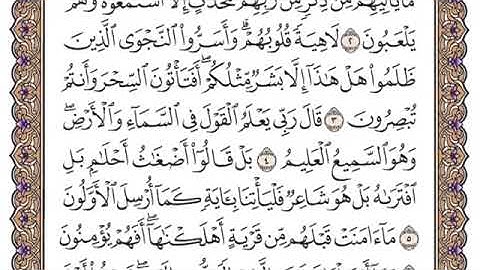 مَا يَأْتِيهِم مِّن ذِكْرٍ مِّن رَّبِّهِم مُّحْدَثٍ إِلَّا ٱسْتَمَعُوهُ وَهُمْ
يَلْعَبُونَ ٢ لَاهِيَةً قُلُوبُهُمْ ۗ وَأَسَرُّوا۟ ٱلنَّجْوَى ٱلَّذِينَ
ظَلَمُوا۟ هَلْ هَٰذَآ إِلَّا بَشَرٌ مِّثْلُكُمْ ۖ أَفَتَأْتُونَ ٱلسِّحْرَ وَأَنتُمْ
تُبْصِرُونَ ٣ قَالَ رَبِّى يَعْلَمُ ٱلْقَوْلَ فِى ٱلسَّمَآءِ وَٱلْأَرْضِ ۖ
وَهُوَ ٱلسَّمِيعُ ٱلْعَلِيمُ ٤ بَلْ قَالُوٓا۟ أَضْغَٰثُ أَحْلَٰمٍۭ بَلِ
ٱفْتَرَىٰهُ بَلْ هُوَ شَاعِرٌ فَلْيَأْتِنَا بِـَٔايَةٍ كَمَآ أُرْسِلَ ٱلْأَوَّلُونَ
٥ مَآ ءَامَنَتْ قَبْلَهُم مِّن قَرْيَةٍ أَهْلَكْنَٰهَآ ۖ أَفَهُمْ يُؤْمِنُونَ